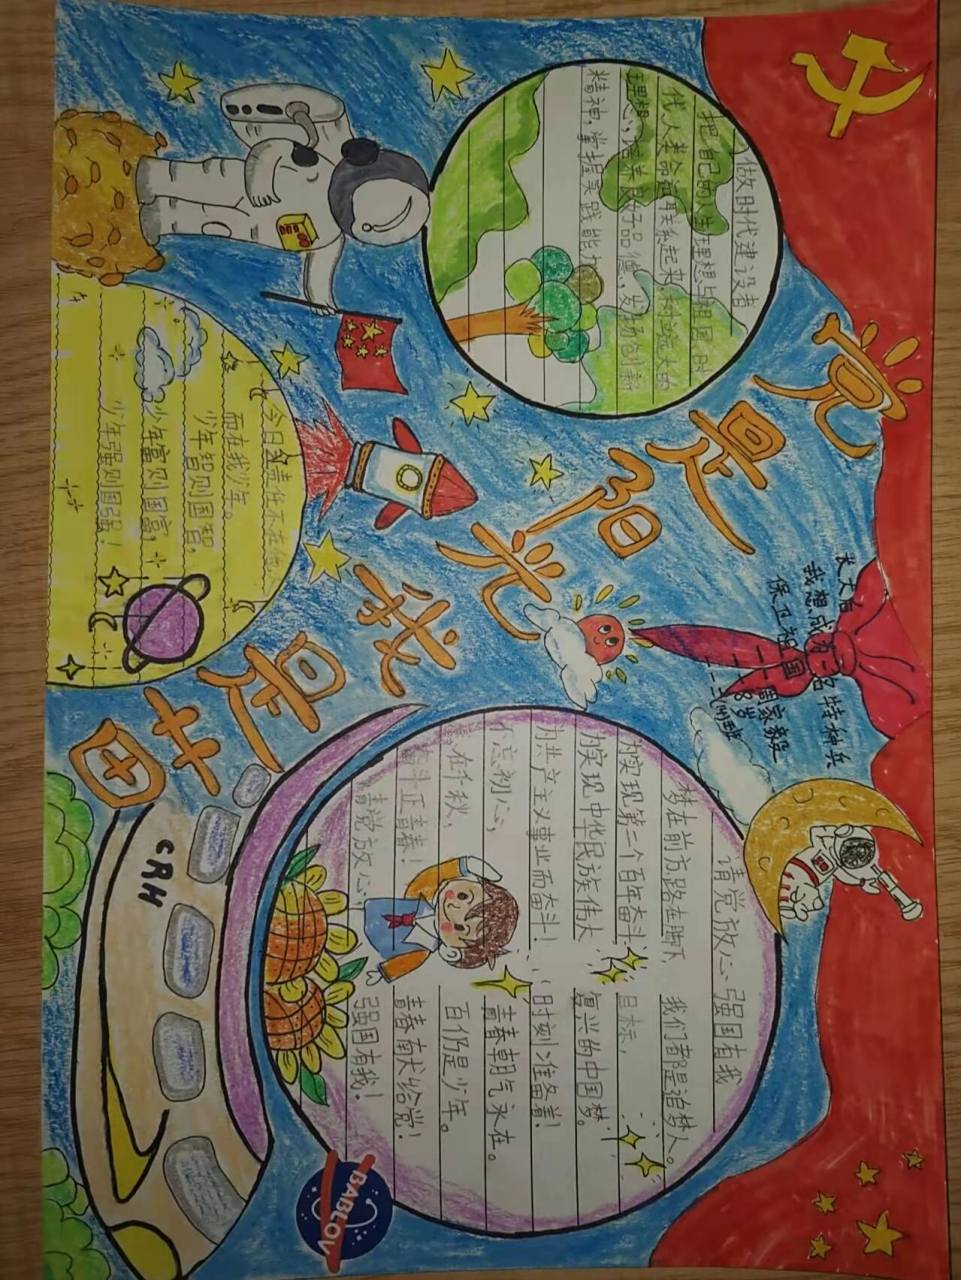 党是阳光我是苗
做时代建设者
把自己的人生理想与祖国、时
代、人类命运联系起来,树立远大的
理想,培养良好品德,发扬创新
精神,掌握实践能力
今日之责任不在他人
而在我少年。
少年智则国智,
少年富则国富,
少年强则国强!
长大后
我想成为一名特种兵
保卫祖国
周家毅
8岁
请党放心 强国有我
梦在前方,路在脚下,我们都是追梦人。
为实现第二个百年奋斗目标,
为实现中华民族伟大复兴的中国梦。
为共产主义事业而奋斗!时刻准备着!
不忘初心,青春朝气永在。
千秋,百仍是少年。
奋斗正青春!青春献给党!
请党放心,强国有我!
CRH
BABLOV